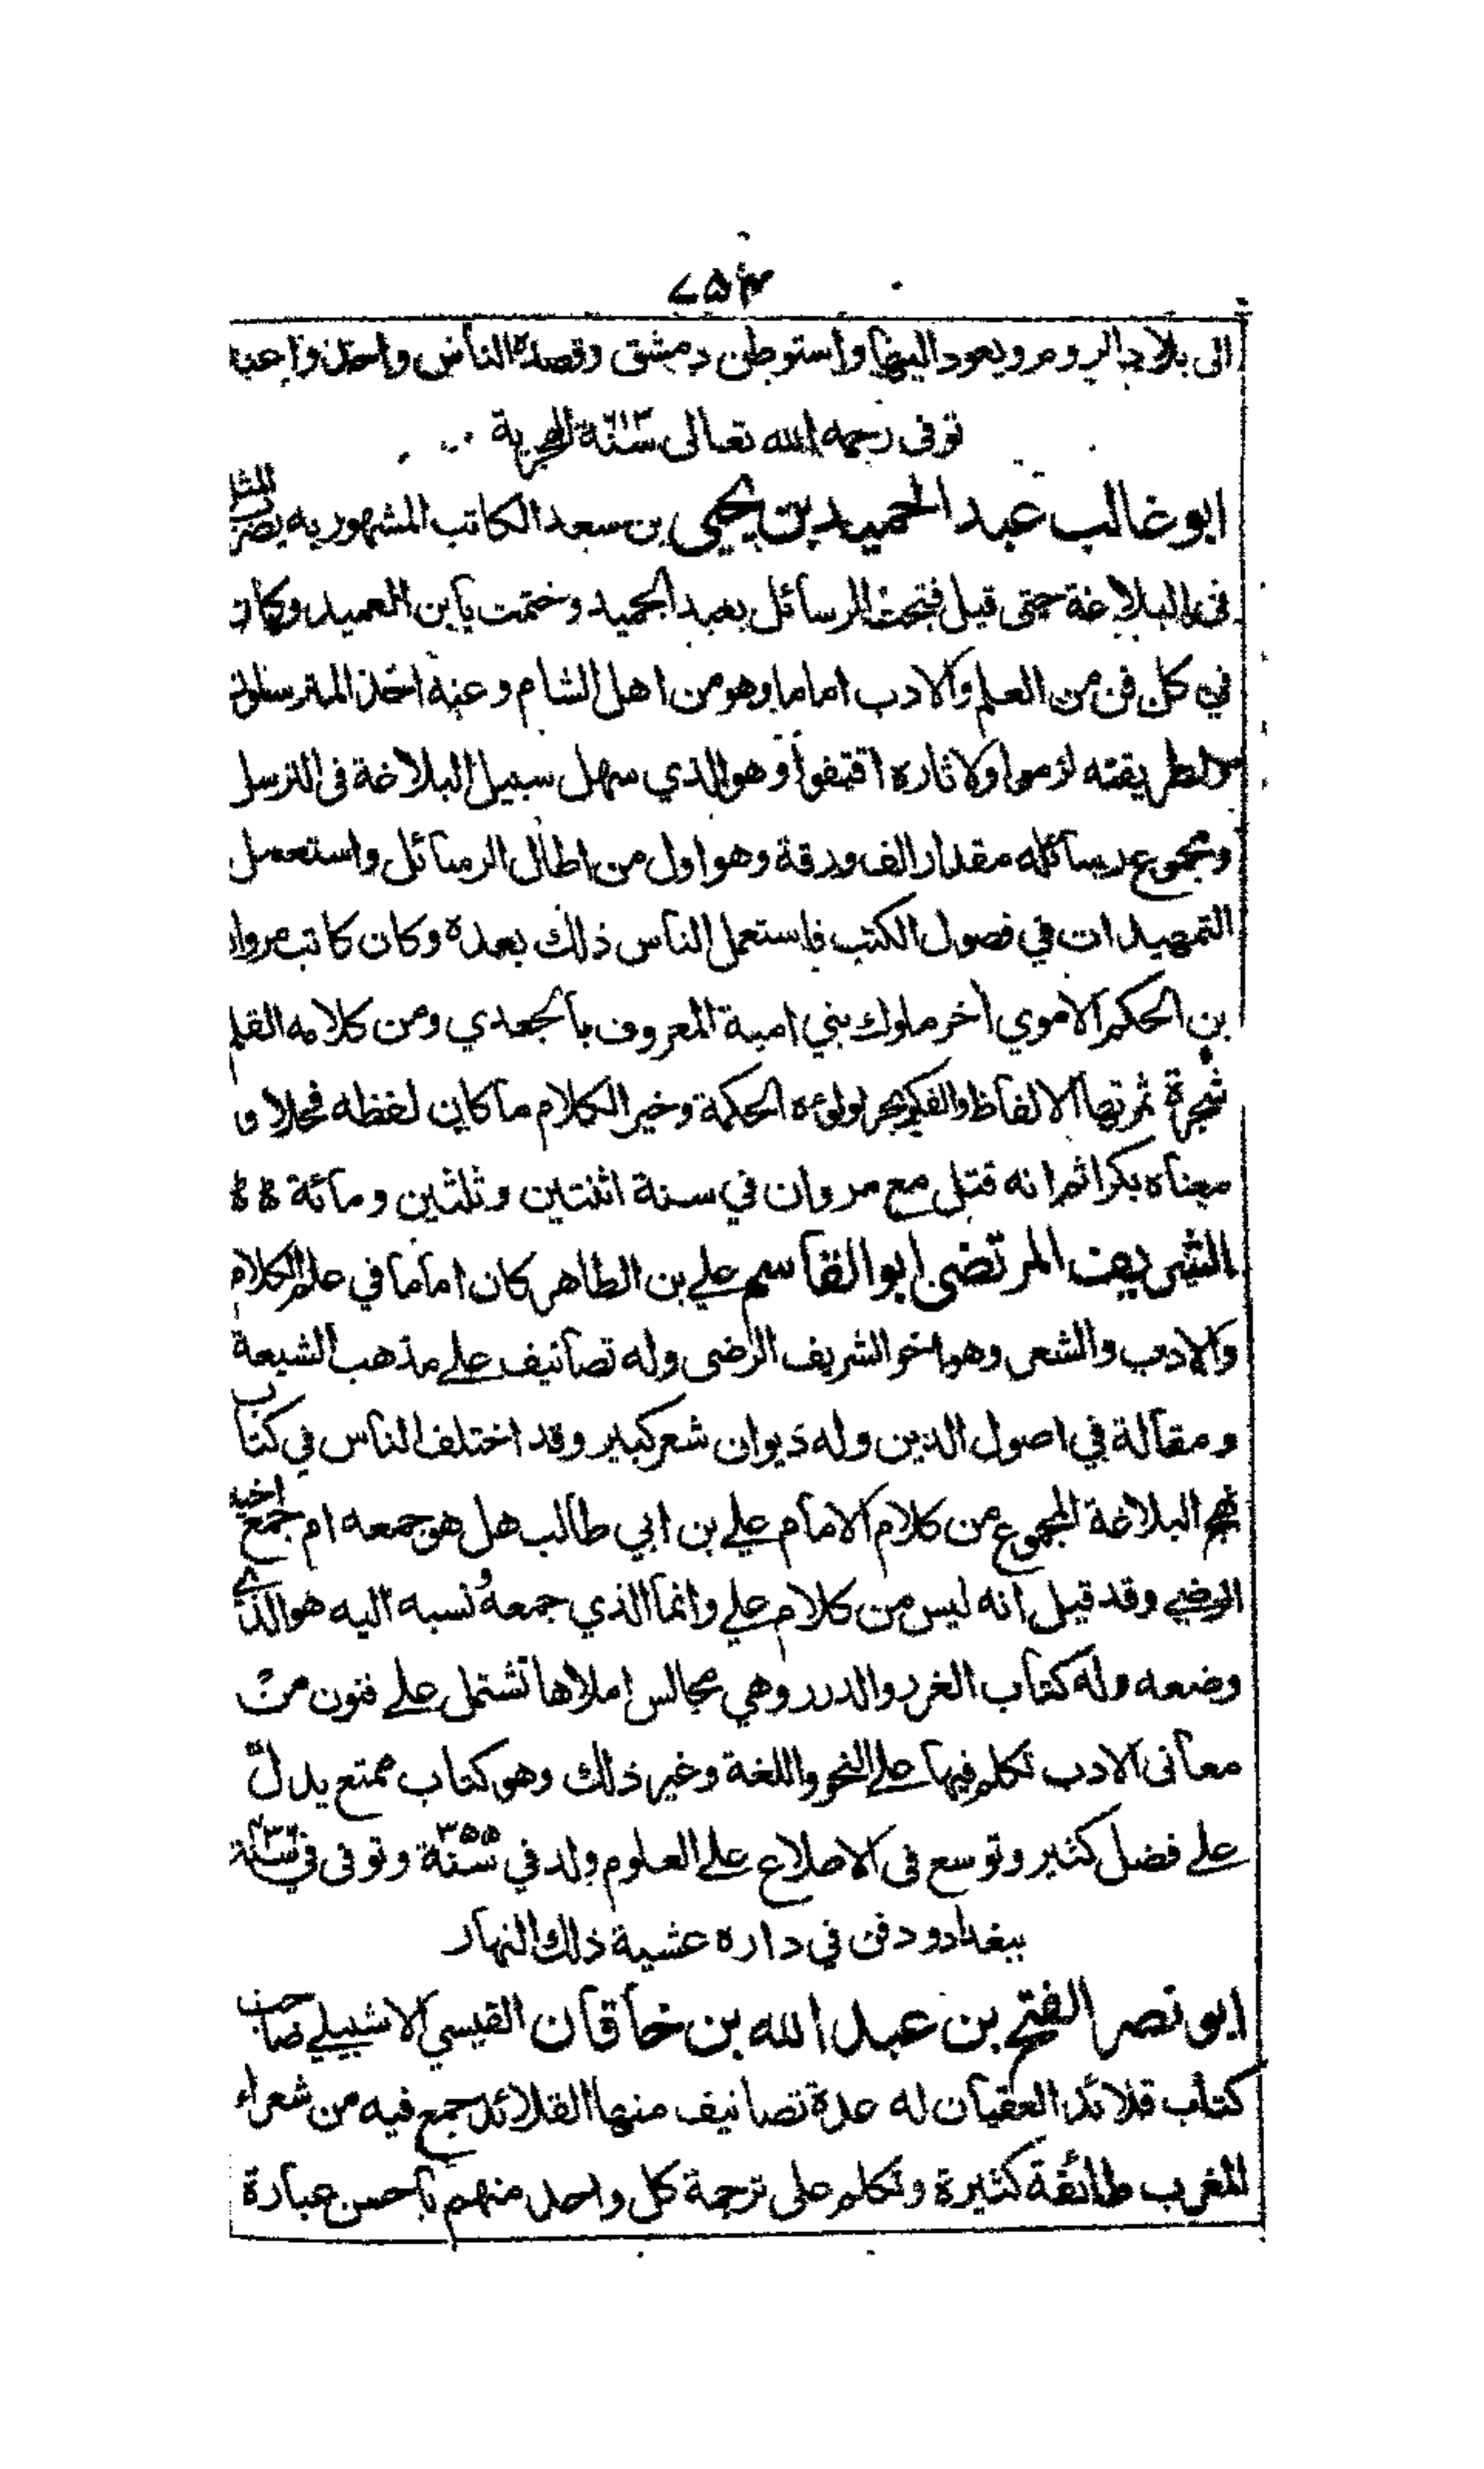 ٧٥٣
الى بلاد الروم ويعود اليها واستوطن دمشق وقصده الناس واخذوا عنه
توفى رحمه الله تعالى سنة الهجرية
ابو غالب عبد الحميد بن يحيى بن سعد الكاتب المشهور به يضرب المثل
فى البلاغة حتى قيل فتحت الرسائل بعبد الحميد وختمت بابن العميد وكان
في كل فن من العلم والادب اماما وهو من اهل الشام وعنه اخذ المترسلون
ولطريقته لزموا ولاثاره اقتفوا وهو الذي سهل سبيل البلاغة فى الترسل
ومجموع رسائله مقدار الف ورقة وهو اول من اطال الرسائل واستعمل
التمهيدات في فصول الكتب فاستعمل الناس ذلك بعده وكان كاتب مروان
بن الحكم الاموي اخر ملوك بني امية المعروف بالجعدي ومن كلامه القلم
شجرة ثمرتها الالفاظ والفكر بحر لولوءه الحكمة وخير الكلام ما كان لفظه فحلا و
معناه بكرا ثم انه قتل مع مروان في سنة اثنتين وثلثين ومائة ة ة
الشريف المرتضى ابو القاسم علي بن الطاهر كان اماما في علم الكلام
والادب والشعر وهو اخو الشريف الرضى وله تصانيف على مذهب الشيعة
ومقالة في اصول الدين وله ديوان شعر كبير وقد اختلف الناس في كتاب
نهج البلاغة المجموع من كلام الامام علي بن ابي طالب هل هو جمعه ام جمع اخيه
الرضي وقد قيل انه ليس من كلام علي وانما الذي جمعه ونسبه اليه هو الذي
وضعه وله كتاب الغرر والدرر وهي مجالس املاها تشتمل على فنون من
معانى الادب تكلم فيها على النحو واللغة وغير ذلك وهو كتاب ممتع يدل
على فضل كثير وتوسع فى الاطلاع على العلوم ولد في سنة ٣٥٥ وتوفى في سنة
ببغداد ودفن في داره عشية ذلك النهار
ابو نصر الفتح بن عبد الله بن خاقان القيسي الاشبيلي صاحب
كتاب قلائد العقيان له عدة تصانيف منها القلائد جمع فيه من شعراء
المغرب طائفة كثيرة وتكلم على ترجمة كل واحد منهم باحسن عبارة